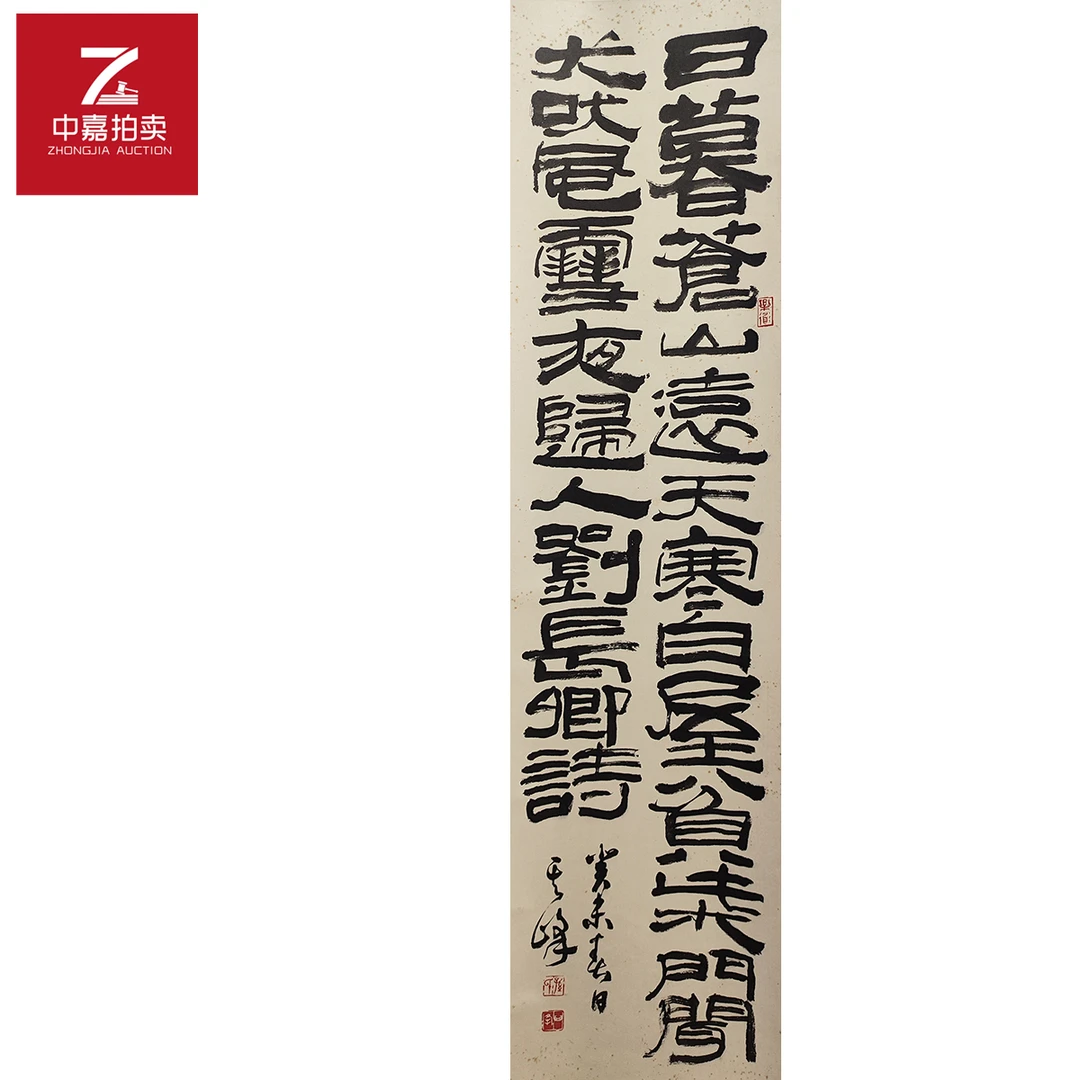 中嘉拍卖
ZHONGJIA AUCTION
日暮蒼山遠天寒白屋貧柴門聞
犬吠風雪夜歸人劉長卿詩
癸未春日
其峰